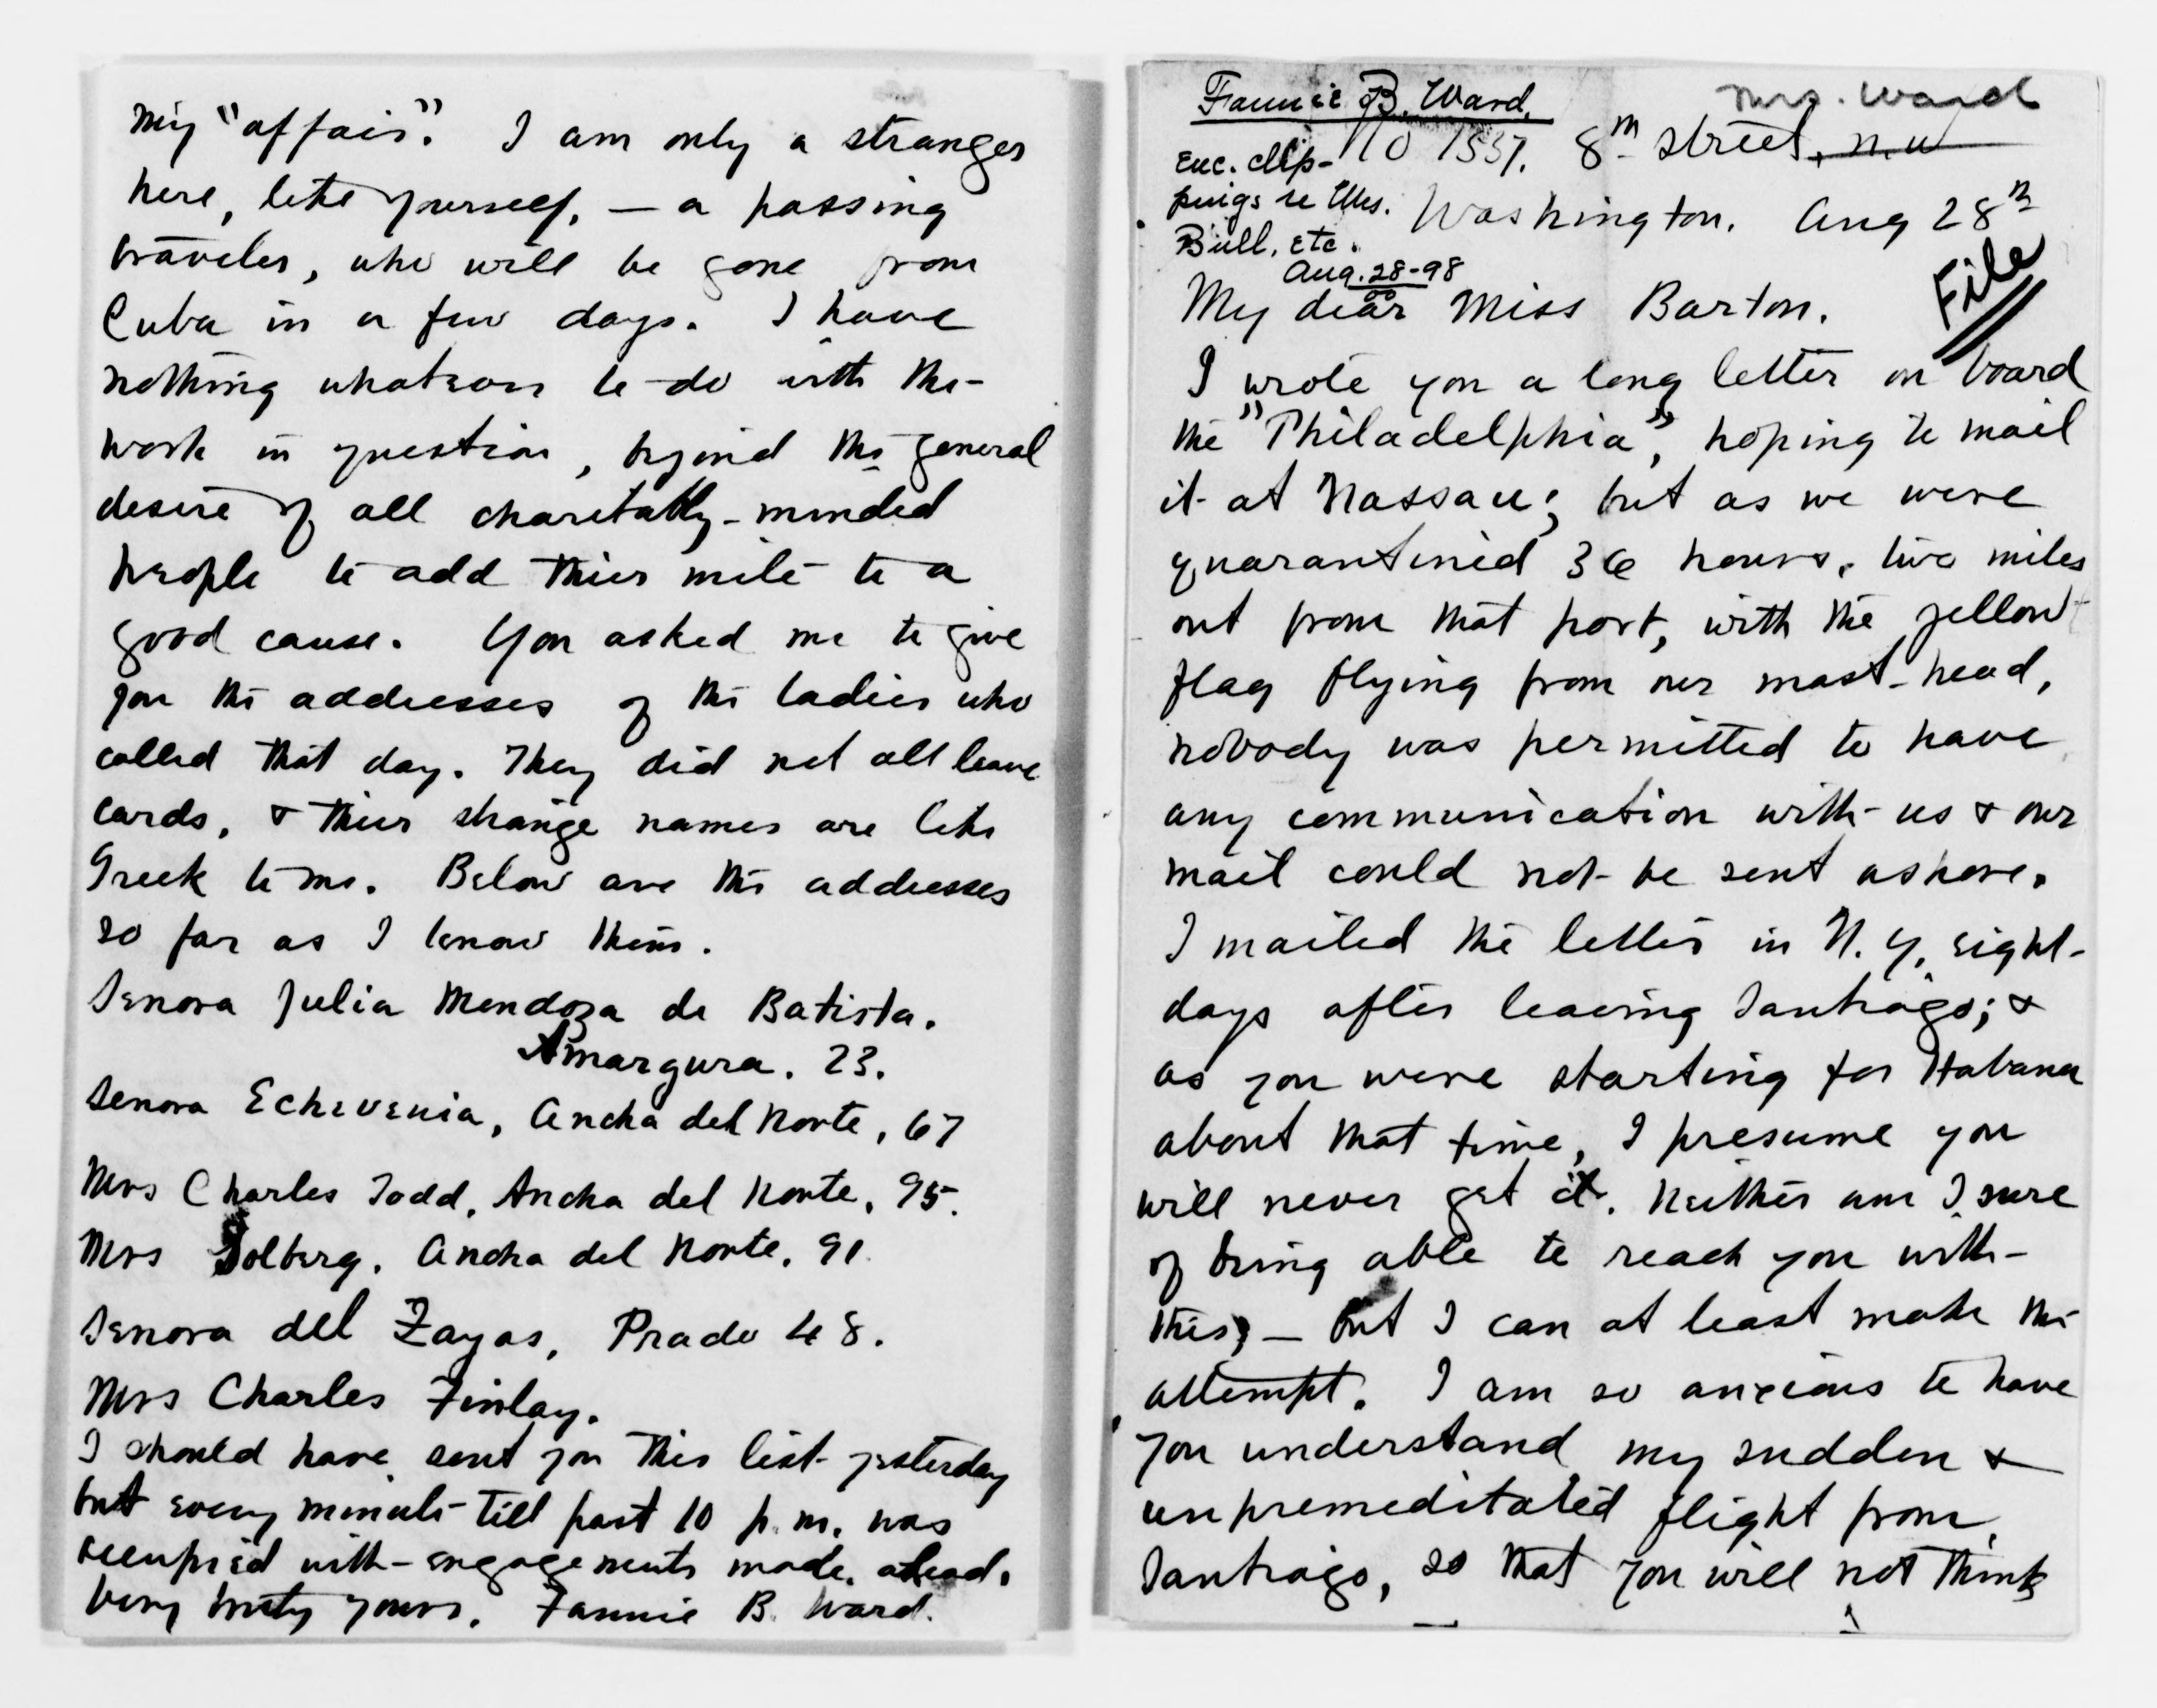 My "affair". I am only a stranger
here, like yourself, — a passing
traveler, who will be gone from
Cuba in a few days. I have
nothing whatever to do with the
work in question, beyond the general
desire of all charitably-minded
people to add their mite to a
good cause. You asked me to give
you the addresses of the ladies who
called that day. They did not all leave
cards, & their strange names are like
Greek to me. Below are the addresses
so far as I know them.
Senora Julia Mendoza de Batista.
Amargura. 23.
Senora Echeverria, Ancha del Norte, 67
Mrs Charles Todd, Ancha del Norte, 95.
Mrs Solberg. Ancha del Norte, 91.
Senora del Zayas, Prado 48.
Mrs Charles Finlay.
I should have sent you this list yesterday
but every minute till past 10 p.m. was
occupied with engagements made ahead.
Very truly yours, Fannie B. Ward.
Fannie B. Ward.
Mrs. Ward
No 1337. 8th Street, N.W
Enc. clip-
pings re
Bull, etc.
Washington. Aug 28th
Aug. 28-98
File
My dear Miss Barton.
I wrote you a long letter on board
the "Philadelphia", hoping to mail
it at Nassau; but as we were
quarantined 36 hours, two miles
out from that port, with the yellow
flag flying from our mast-head,
nobody was permitted to have
any communication with us & our
mail could not be sent ashore.
I mailed the letter in N.Y. eight
days after leaving Santiago; &
as you were starting for Habana
about that time, I presume you
will never get it. Neither am I sure
of being able to reach you with
this; — but I can at least make the
attempt. I am so anxious to have
you understand my sudden &
unpremeditated flight from
Santiago, so that you will not think
1